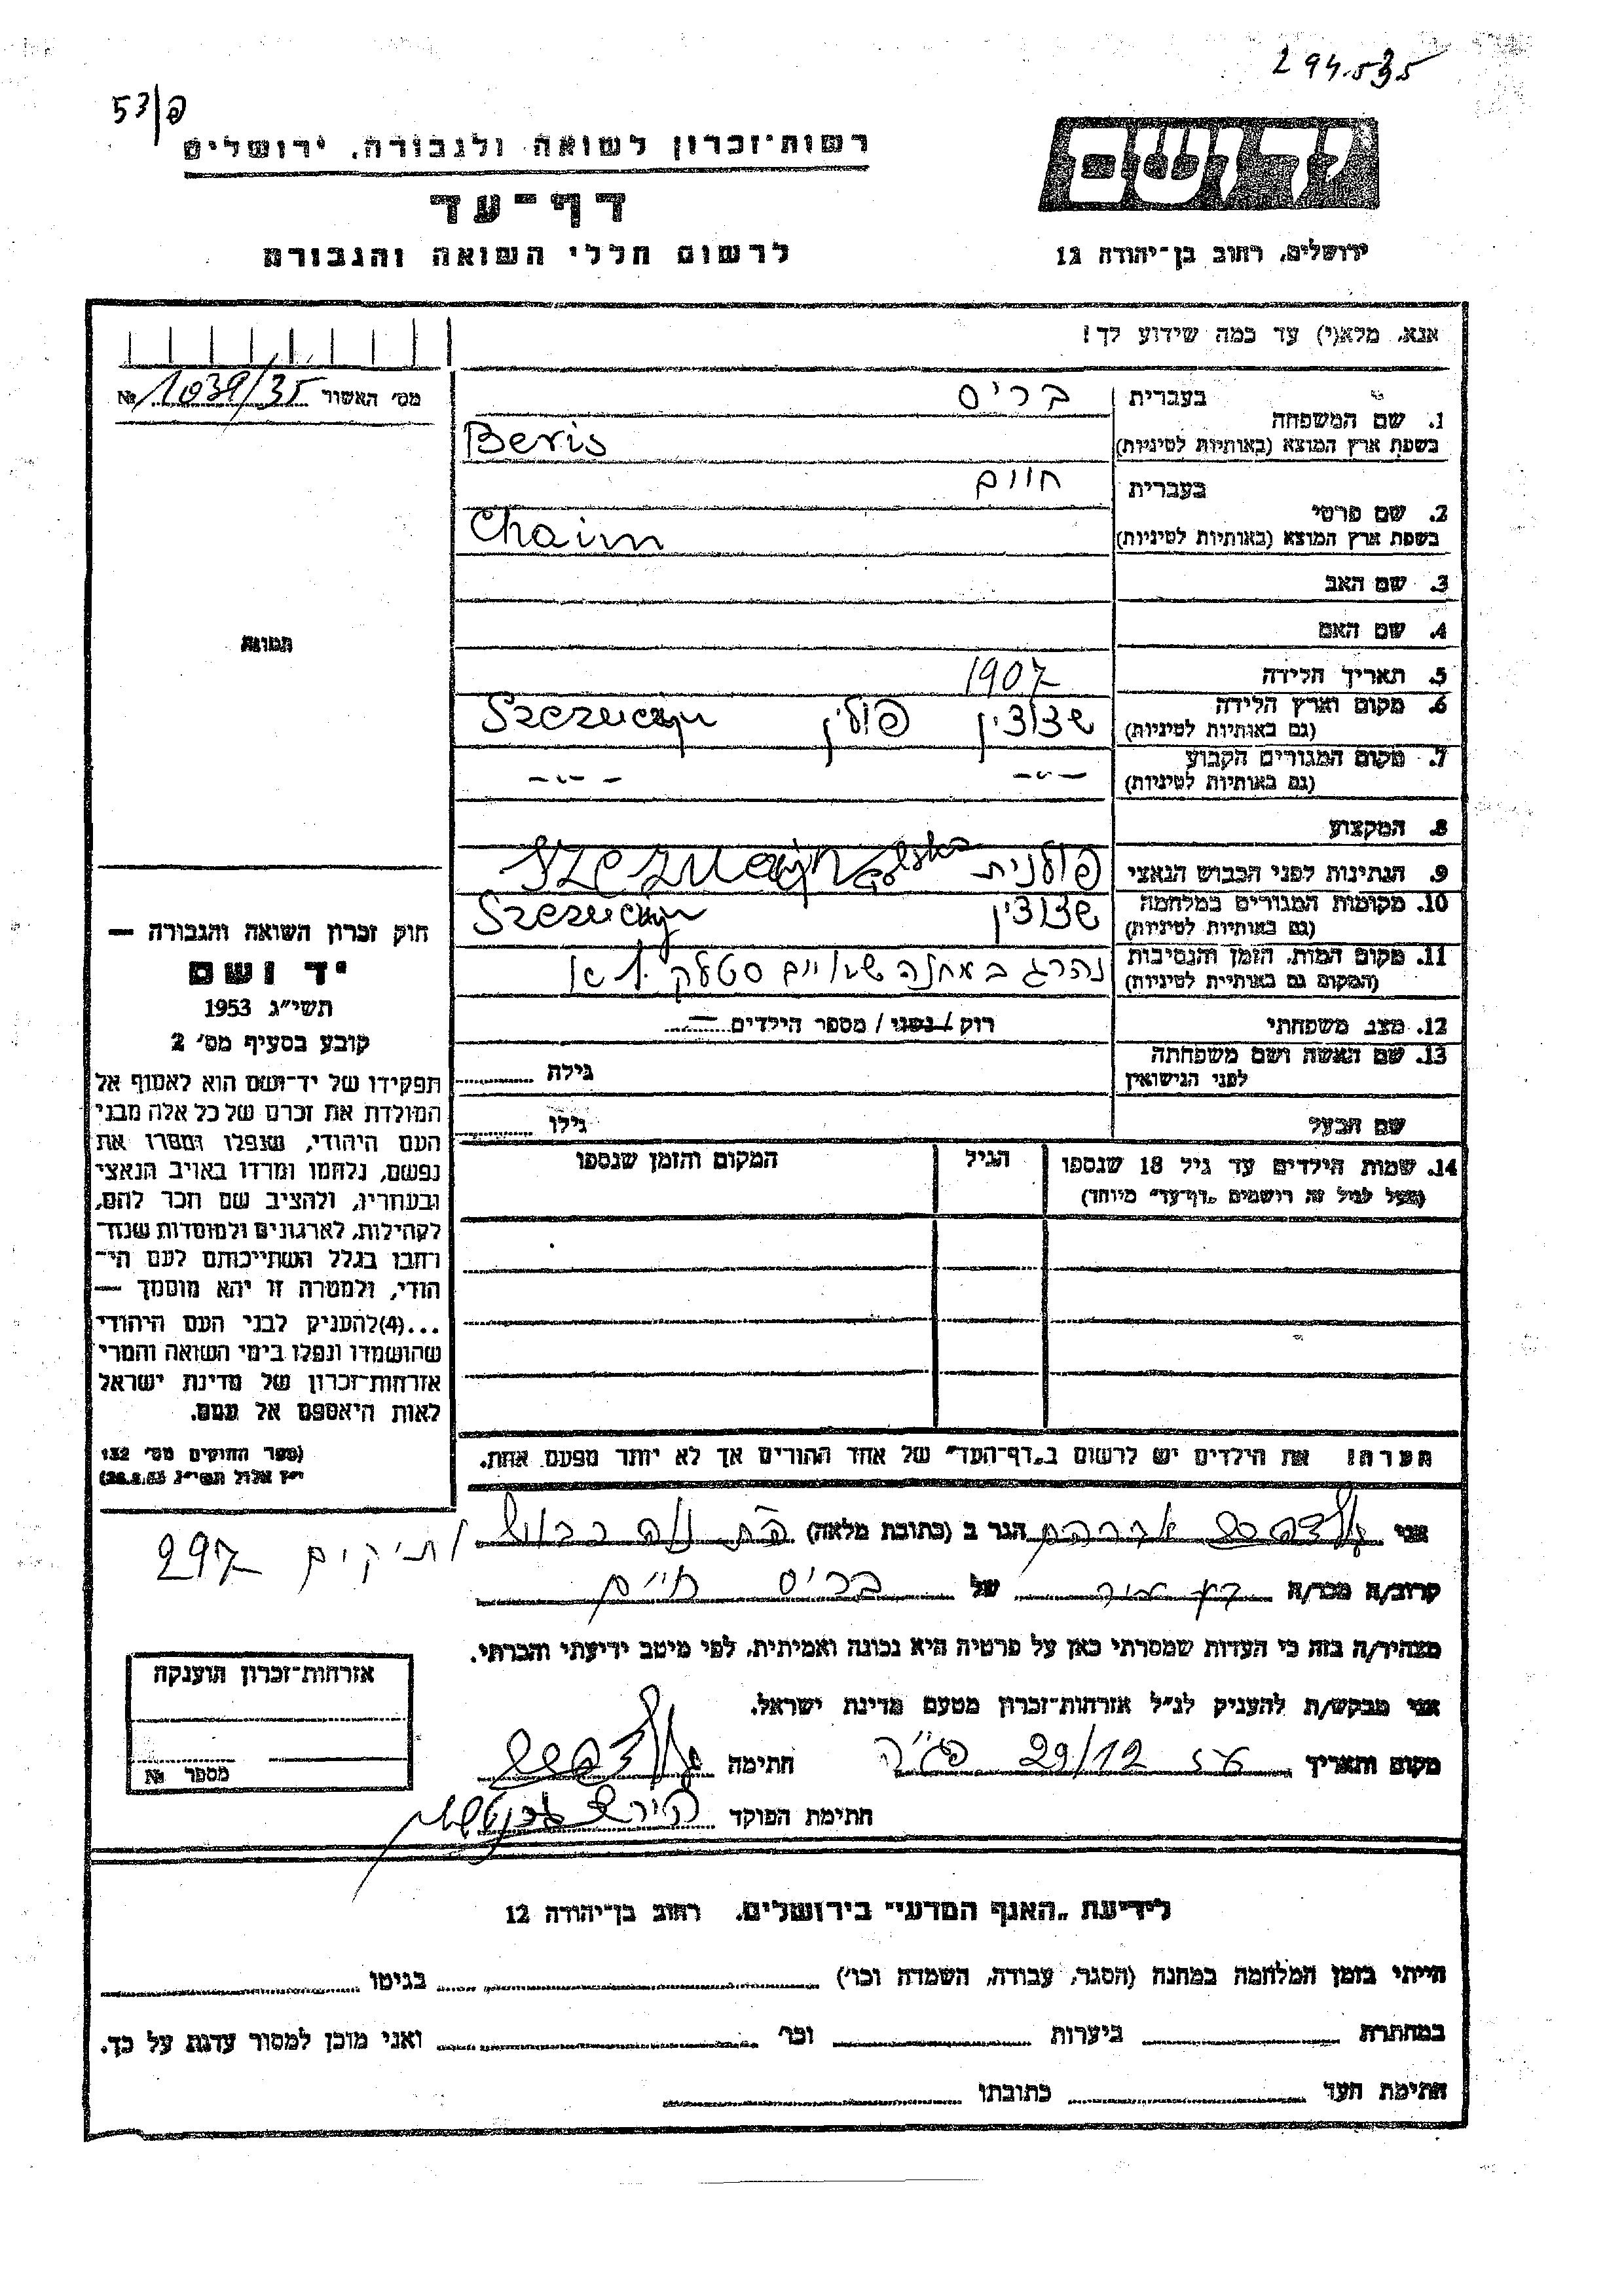 294535
53/פ
רשות־זכרון לשואה ולגבורה, ירושלים
דף־עד
לרשום חללי השואה והגבורה
יד ושם
ירושלים, רחוב בן־יהודה 12
אנא, מלא(י) עד כמה שידוע לך!
מס׳ האשור 1039/35 №
1. שם המשפחה
בעברית בריס
בשפת ארץ המוצא (באותיות לטיניות) Beris
2. שם פרטי
בעברית חיים
בשפת ארץ המוצא (באותיות לטיניות) Chaim
3. שם האב
4. שם האם
5. תאריך הלידה 1907
6. מקום וארץ הלידה שצוצין פולין Szczuczyn
(גם באותיות לטיניות)
7. מקום המגורים הקבוע -״- -״-
(גם באותיות לטיניות)
8. המקצוע
9. הנתינות לפני הכבוש הנאצי פולנית
10. מקומות המגורים במלחמה שצוצין Szczuczyn
(גם באותיות לטיניות)
11. מקום המות, הזמן והנסיבות נהרג במחנה
(המקום גם באותיות לטיניות)
12. מצב משפחתי רוק / נשוי / מספר הילדים —
13. שם האשה ושם משפחתה
לפני הנישואין
גילה
שם הבעל גילו
14. שמות הילדים עד גיל 18 שנספו
(מעל לגיל זה רושמים „דף־עד״ מיוחד)
הגיל
המקום והזמן שנספו
תמונה
חוק זכרון השואה והגבורה —
יד ושם
תשי״ג 1953
קובע בסעיף מס׳ 2
תפקידו של יד־ושם הוא לאסוף אל
המולדת את זכרם של כל אלה מבני
העם היהודי, שנפלו ומסרו את
נפשם, נלחמו ומרדו באויב הנאצי
ובעוזריו, ולהציב שם וזכר להם,
לקהילות, לארגונים ולמוסדות שנח־
רבו בגלל השתייכותם לעם הי־
הודי, ולמטרה זו יהא מוסמך —
...(4)להעניק לבני העם היהודי
שהושמדו ונפלו בימי השואה והמרי
אזרחות־זכרון של מדינת ישראל
לאות היאספם אל עמם.
(ספר החוקים מס׳ 132
י״ז אלול תשי״ג 28.8.53)
הערה! את הילדים יש לרשום ב„דף־העד״ של אחד ההורים אך לא יותר מפעם אחת.
אני אברהם הגר ב (כתובת מלאה)
ותיקים 297
קרוב/ה מכר/ה של בריס חיים
מצהיר/ה בזה כי העדות שמסרתי כאן על פרטיה היא נכונה ואמיתית, לפי מיטב ידיעתי והכרתי.
אני מבקש/ת להעניק לנ״ל אזרחות־זכרון מטעם מדינת ישראל.
מקום ותאריך 29/12 חתימה
חתימת הפוקד
אזרחות־זכרון הוענקה
מספר №
לידיעת „האגף המדעי״ בירושלים, רחוב בן־יהודה 12
הייתי בזמן המלחמה במחנה (הסגר, עבודה, השמדה וכו׳) בגיטו
במחתרת ביערות וכו׳ ואני מוכן למסור עדות על כך.
חתימת העד כתובתו